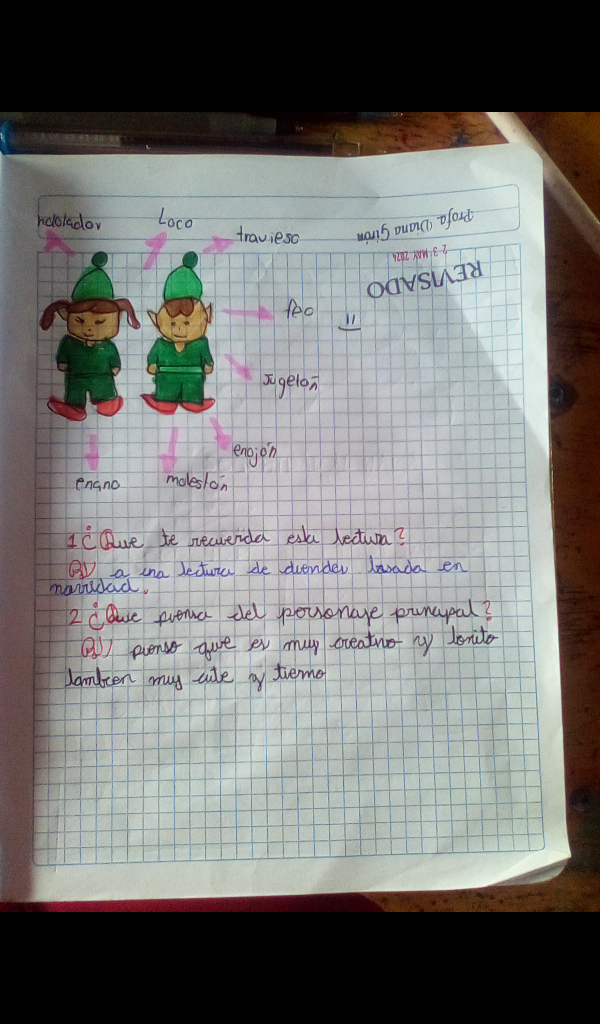 hablador
Loco
travieso
Profa. Diana Girón
23 MAY 2024
REVISADO
feo
=)
Jugetón
enojón
enano
molestón
1 ¿Que te recuerda esta lectura?
R// a una lectura de duendes basada en
navidad.
2 ¿Que piensa del personaje principal?
R// pienso que es muy creativo y bonito
tambien muy cute y tierno